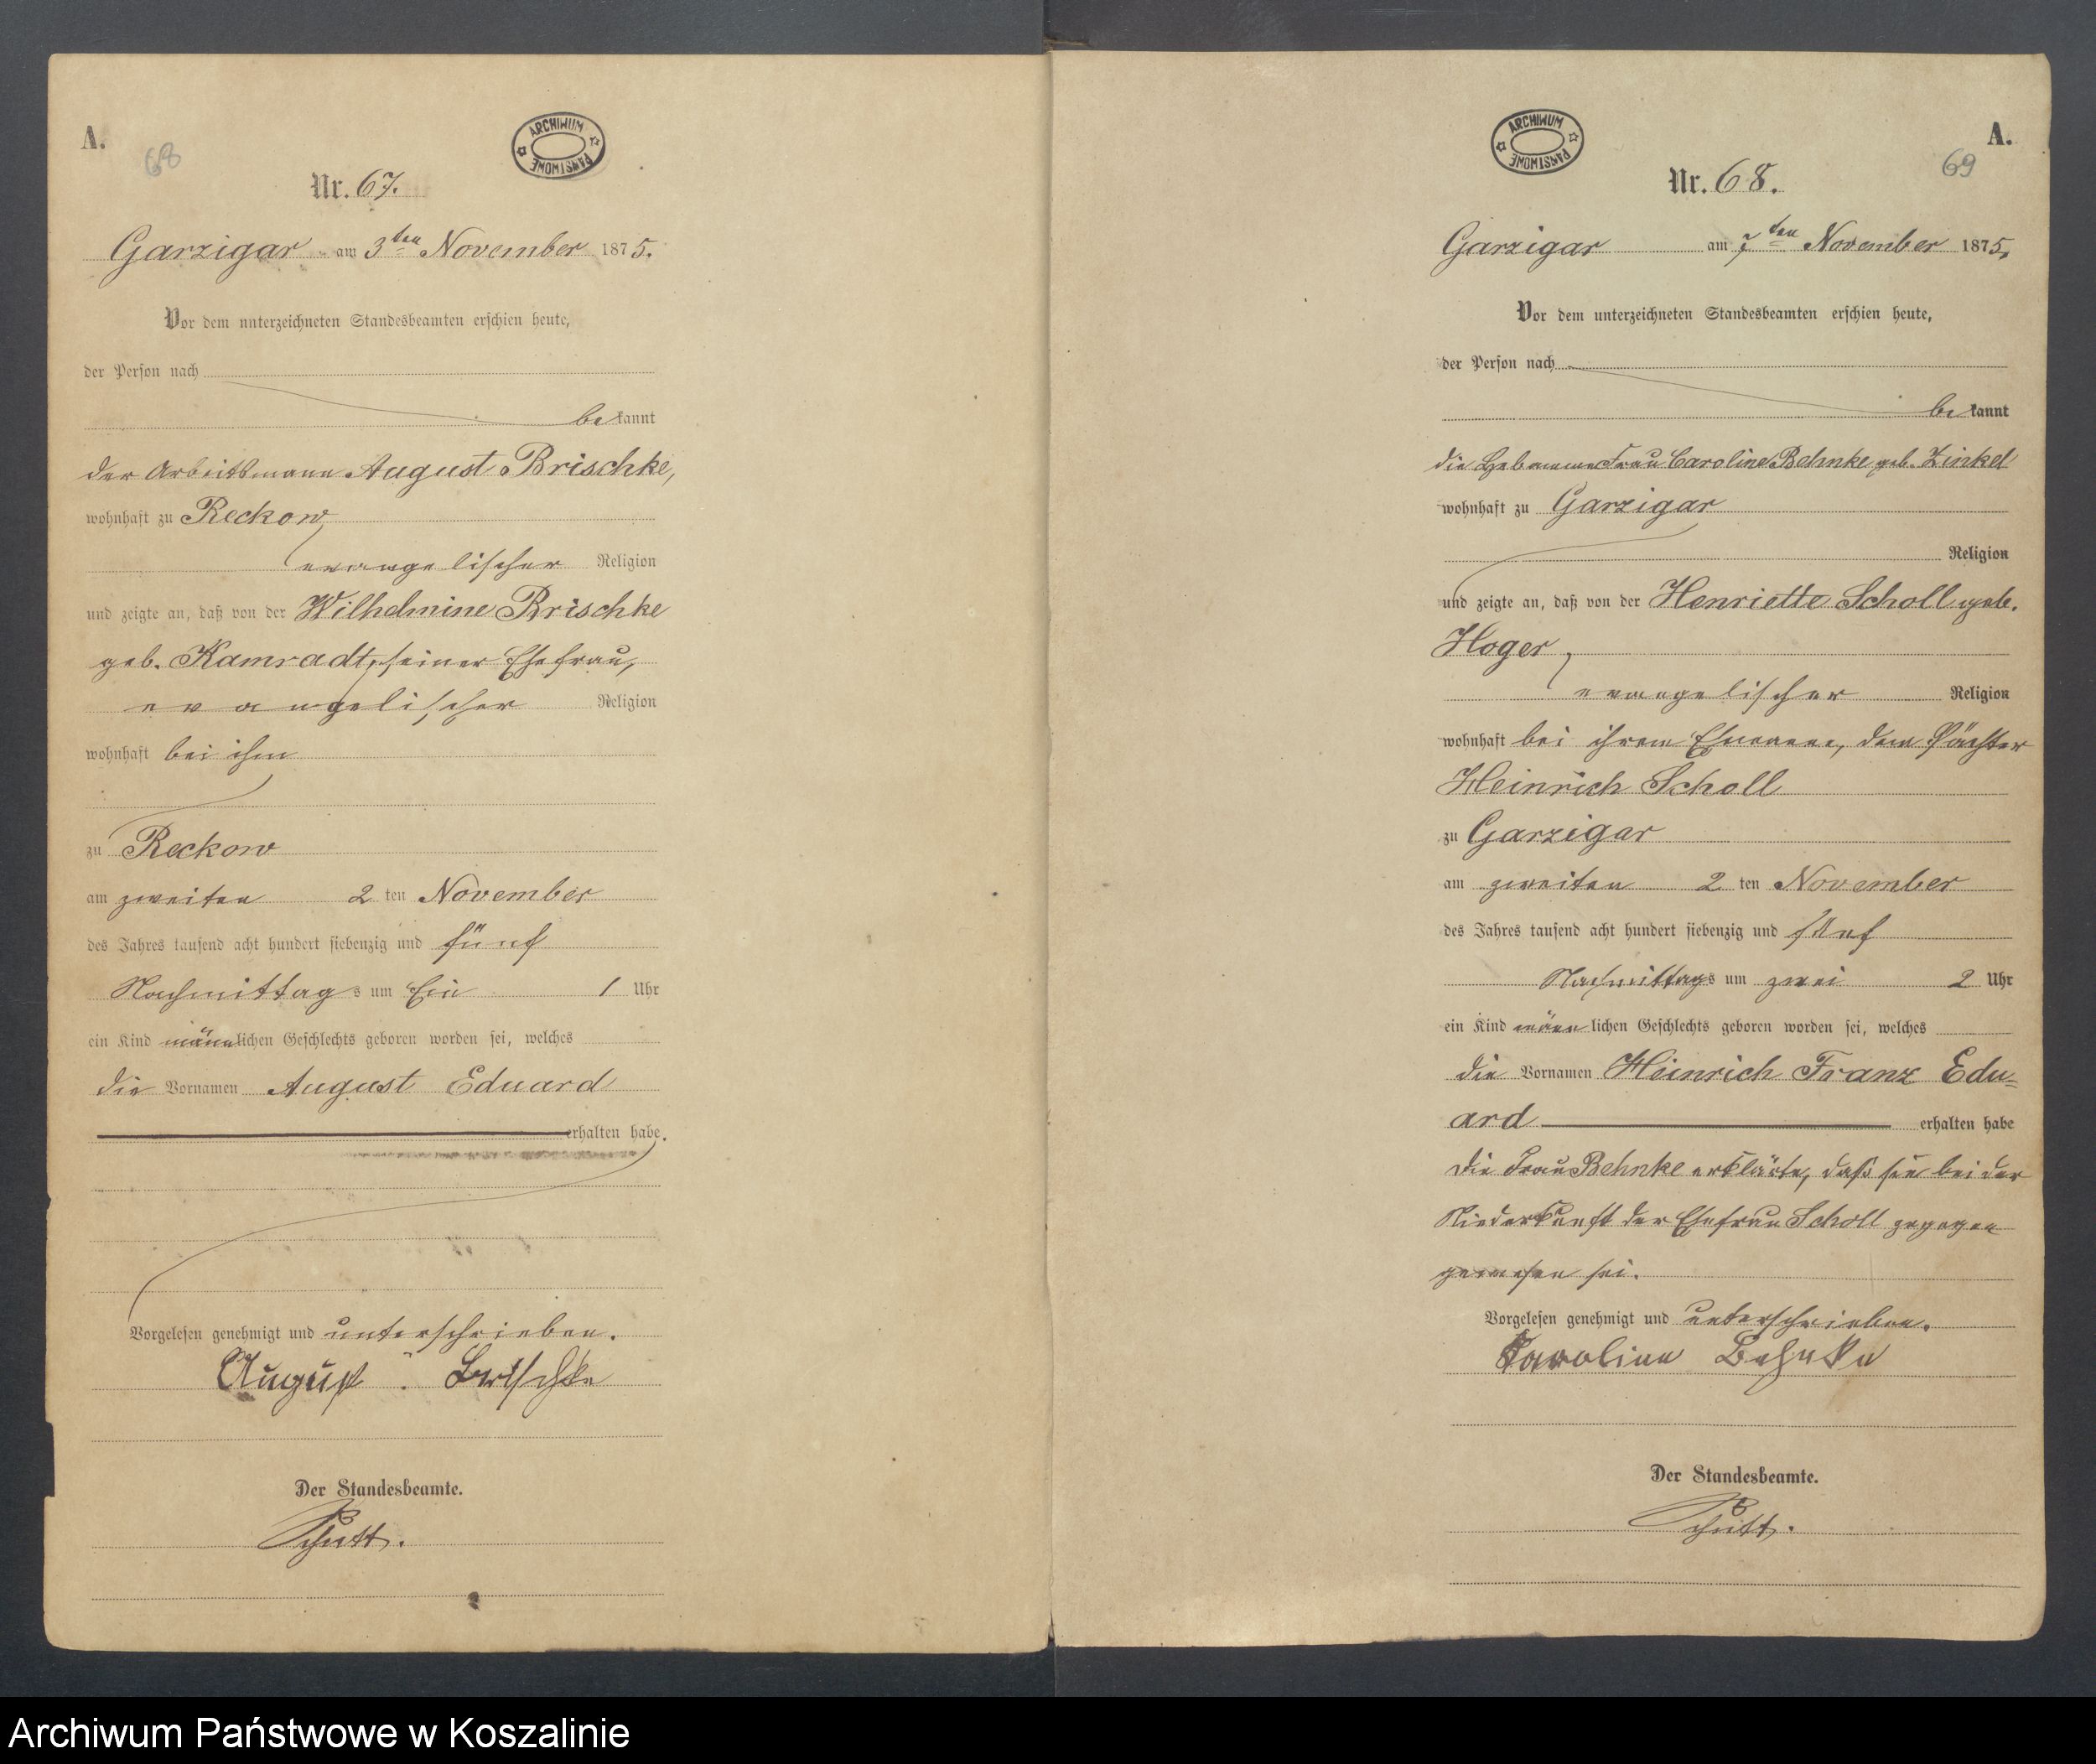 A.
68
ARCHIWUM PAŃSTWOWE
Nr. 67.
Garzigar am 3ten November 1875.
Vor dem unterzeichneten Standesbeamten erschien heute,
der Person nach
bekannt
der Arbeitsmann August Brischke,
wohnhaft zu Reckow,
evangelischer Religion
und zeigte an, daß von der Wilhelmine Brischke
geb. Kamradt, seiner Ehefrau,
evangelischer Religion
wohnhaft bei ihm
zu Reckow
am zweiten 2 ten November
des Jahres tausend acht hundert siebenzig und fünf
Nachmittags um Ein 1 Uhr
ein Kind männlichen Geschlechts geboren worden sei, welches
die Vornamen August Eduard
erhalten habe.
Vorgelesen genehmigt und unterschrieben.
August Brischke
Der Standesbeamte.
A.
69
ARCHIWUM PAŃSTWOWE
Nr. 68.
Garzigar am 7ten November 1875.
Vor dem unterzeichneten Standesbeamten erschien heute,
der Person nach
bekannt
die Hebamme Frau Caroline Behnke geb. Zinkel
wohnhaft zu Garzigar
Religion
und zeigte an, daß von der Henriette Scholl geb.
Hoger,
evangelischer Religion
wohnhaft bei ihrem Ehemann, dem Pächter
Heinrich Scholl
zu Garzigar
am zweiten 2 ten November
des Jahres tausend acht hundert siebenzig und fünf
Nachmittags um zwei 2 Uhr
ein Kind männlichen Geschlechts geboren worden sei, welches
die Vornamen Heinrich Franz Edu=
ard erhalten habe
Die Frau Behnke erklärte, daß sie bei der
Niederkunft der Ehefrau Scholl zugegen
gewesen sei.
Vorgelesen genehmigt und unterschrieben.
Karoline Behnke
Der Standesbeamte.
Archiwum Państwowe w Koszalinie